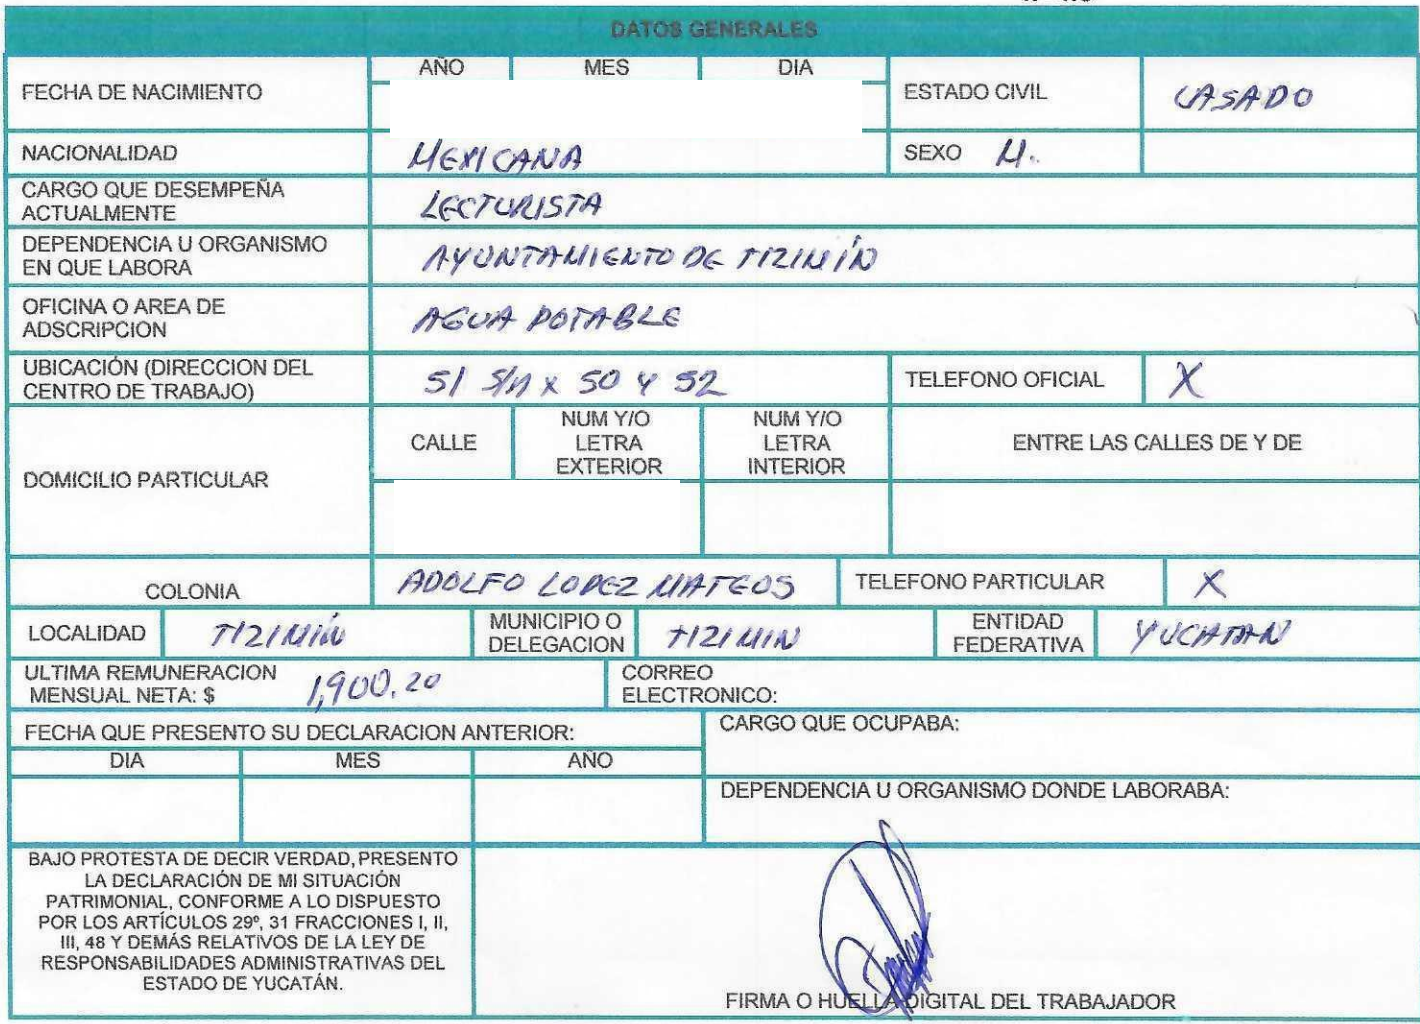 DATOS GENERALES
FECHA DE NACIMIENTO
AÑO MES DIA
ESTADO CIVIL CASADO
NACIONALIDAD MEXICANA SEXO M.
CARGO QUE DESEMPEÑA
ACTUALMENTE
LECTURISTA
DEPENDENCIA U ORGANISMO
EN QUE LABORA
AYUNTAMIENTO DE TIZIMÍN
OFICINA O AREA DE
ADSCRIPCION
AGUA POTABLE
UBICACIÓN (DIRECCION DEL
CENTRO DE TRABAJO)
51 S/N x 50 Y 52
TELEFONO OFICIAL X
DOMICILIO PARTICULAR
CALLE
NUM Y/O
LETRA
EXTERIOR
NUM Y/O
LETRA
INTERIOR
ENTRE LAS CALLES DE Y DE
COLONIA ADOLFO LOPEZ MATEOS TELEFONO PARTICULAR X
LOCALIDAD TIZIMÍN
MUNICIPIO O
DELEGACION
TIZIMIN
ENTIDAD
FEDERATIVA
YUCATAN
ULTIMA REMUNERACION
MENSUAL NETA: $ 1,900.20
CORREO
ELECTRONICO:
FECHA QUE PRESENTO SU DECLARACION ANTERIOR:
DIA MES AÑO
CARGO QUE OCUPABA:
DEPENDENCIA U ORGANISMO DONDE LABORABA:
BAJO PROTESTA DE DECIR VERDAD, PRESENTO
LA DECLARACIÓN DE MI SITUACIÓN
PATRIMONIAL, CONFORME A LO DISPUESTO
POR LOS ARTÍCULOS 29º, 31 FRACCIONES I, II,
III, 48 Y DEMÁS RELATIVOS DE LA LEY DE
RESPONSABILIDADES ADMINISTRATIVAS DEL
ESTADO DE YUCATÁN.
FIRMA O HUELLA DIGITAL DEL TRABAJADOR